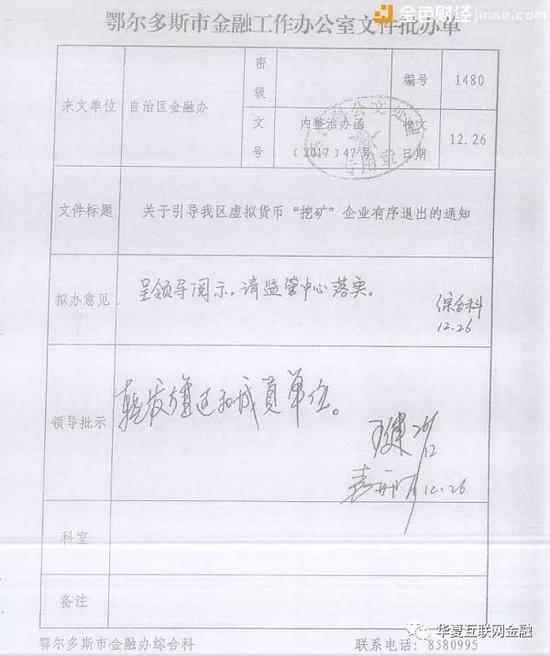 金色财经 jinse.com
鄂尔多斯市金融工作办公室文件批办单
来文单位
自治区金融办
密级
编号
1480
文号
内整治办函
〔2017〕47号
收文日期
12.26
文件标题
关于引导我区虚拟货币“挖矿”企业有序退出的通知
拟办意见
呈领导阅示,请监管中心落实。
综合科
12.26
领导批示
成员单位。
12.26
科室
备注
鄂尔多斯市金融办综合科
联系电话:8580995
华夏互联网金融